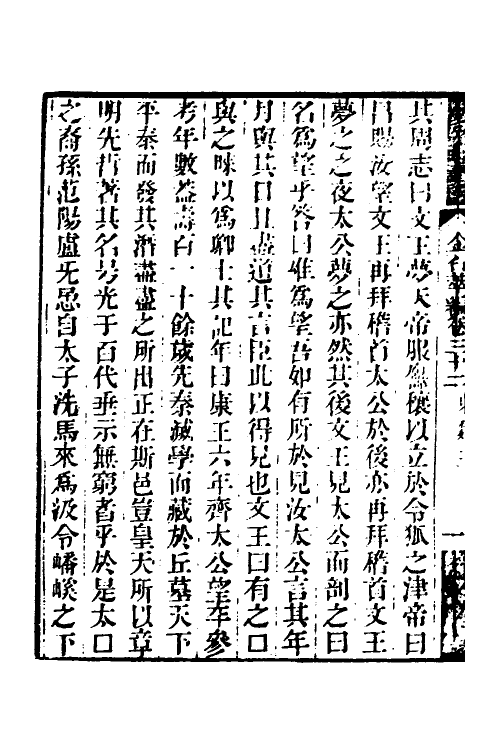 其周志曰文王夢天帝服玄禳以立於令狐之津帝曰
昌賜汝望文王再拜稽首太公於後亦再拜稽首文王
夢之之夜太公夢之亦然其後文王見太公而訓之曰
名為望乎答曰唯為望吾如有所於見汝太公言其年
月與其日且盡道其言臣此以得見也文王曰有之囗
與之歸以為卿士其記年曰康王六年齊太公望卒參
考年數葢壽百一十餘歲先秦滅學而藏於丘墓天下
平泰而發其潛書書之所出正在斯邑豈皇天所以章
明先哲著其名號光于百代垂示無窮者乎於是太囗
之裔孫范陽盧旡忌自太子洗馬來為汲令磻磎之下